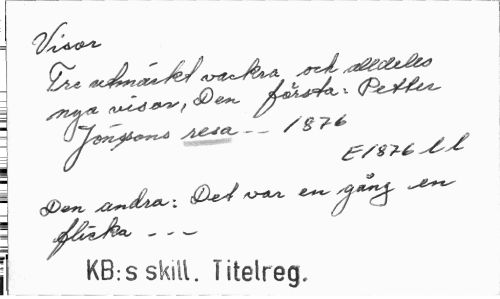 Visor
Tre utmärkt vackra och alldeles
nya visor, Den första: Petter
Jönsons resa -- 1876
E1876 l l
Den andra: Det var en gång en
flicka ---
KB:s skill. Titelreg.